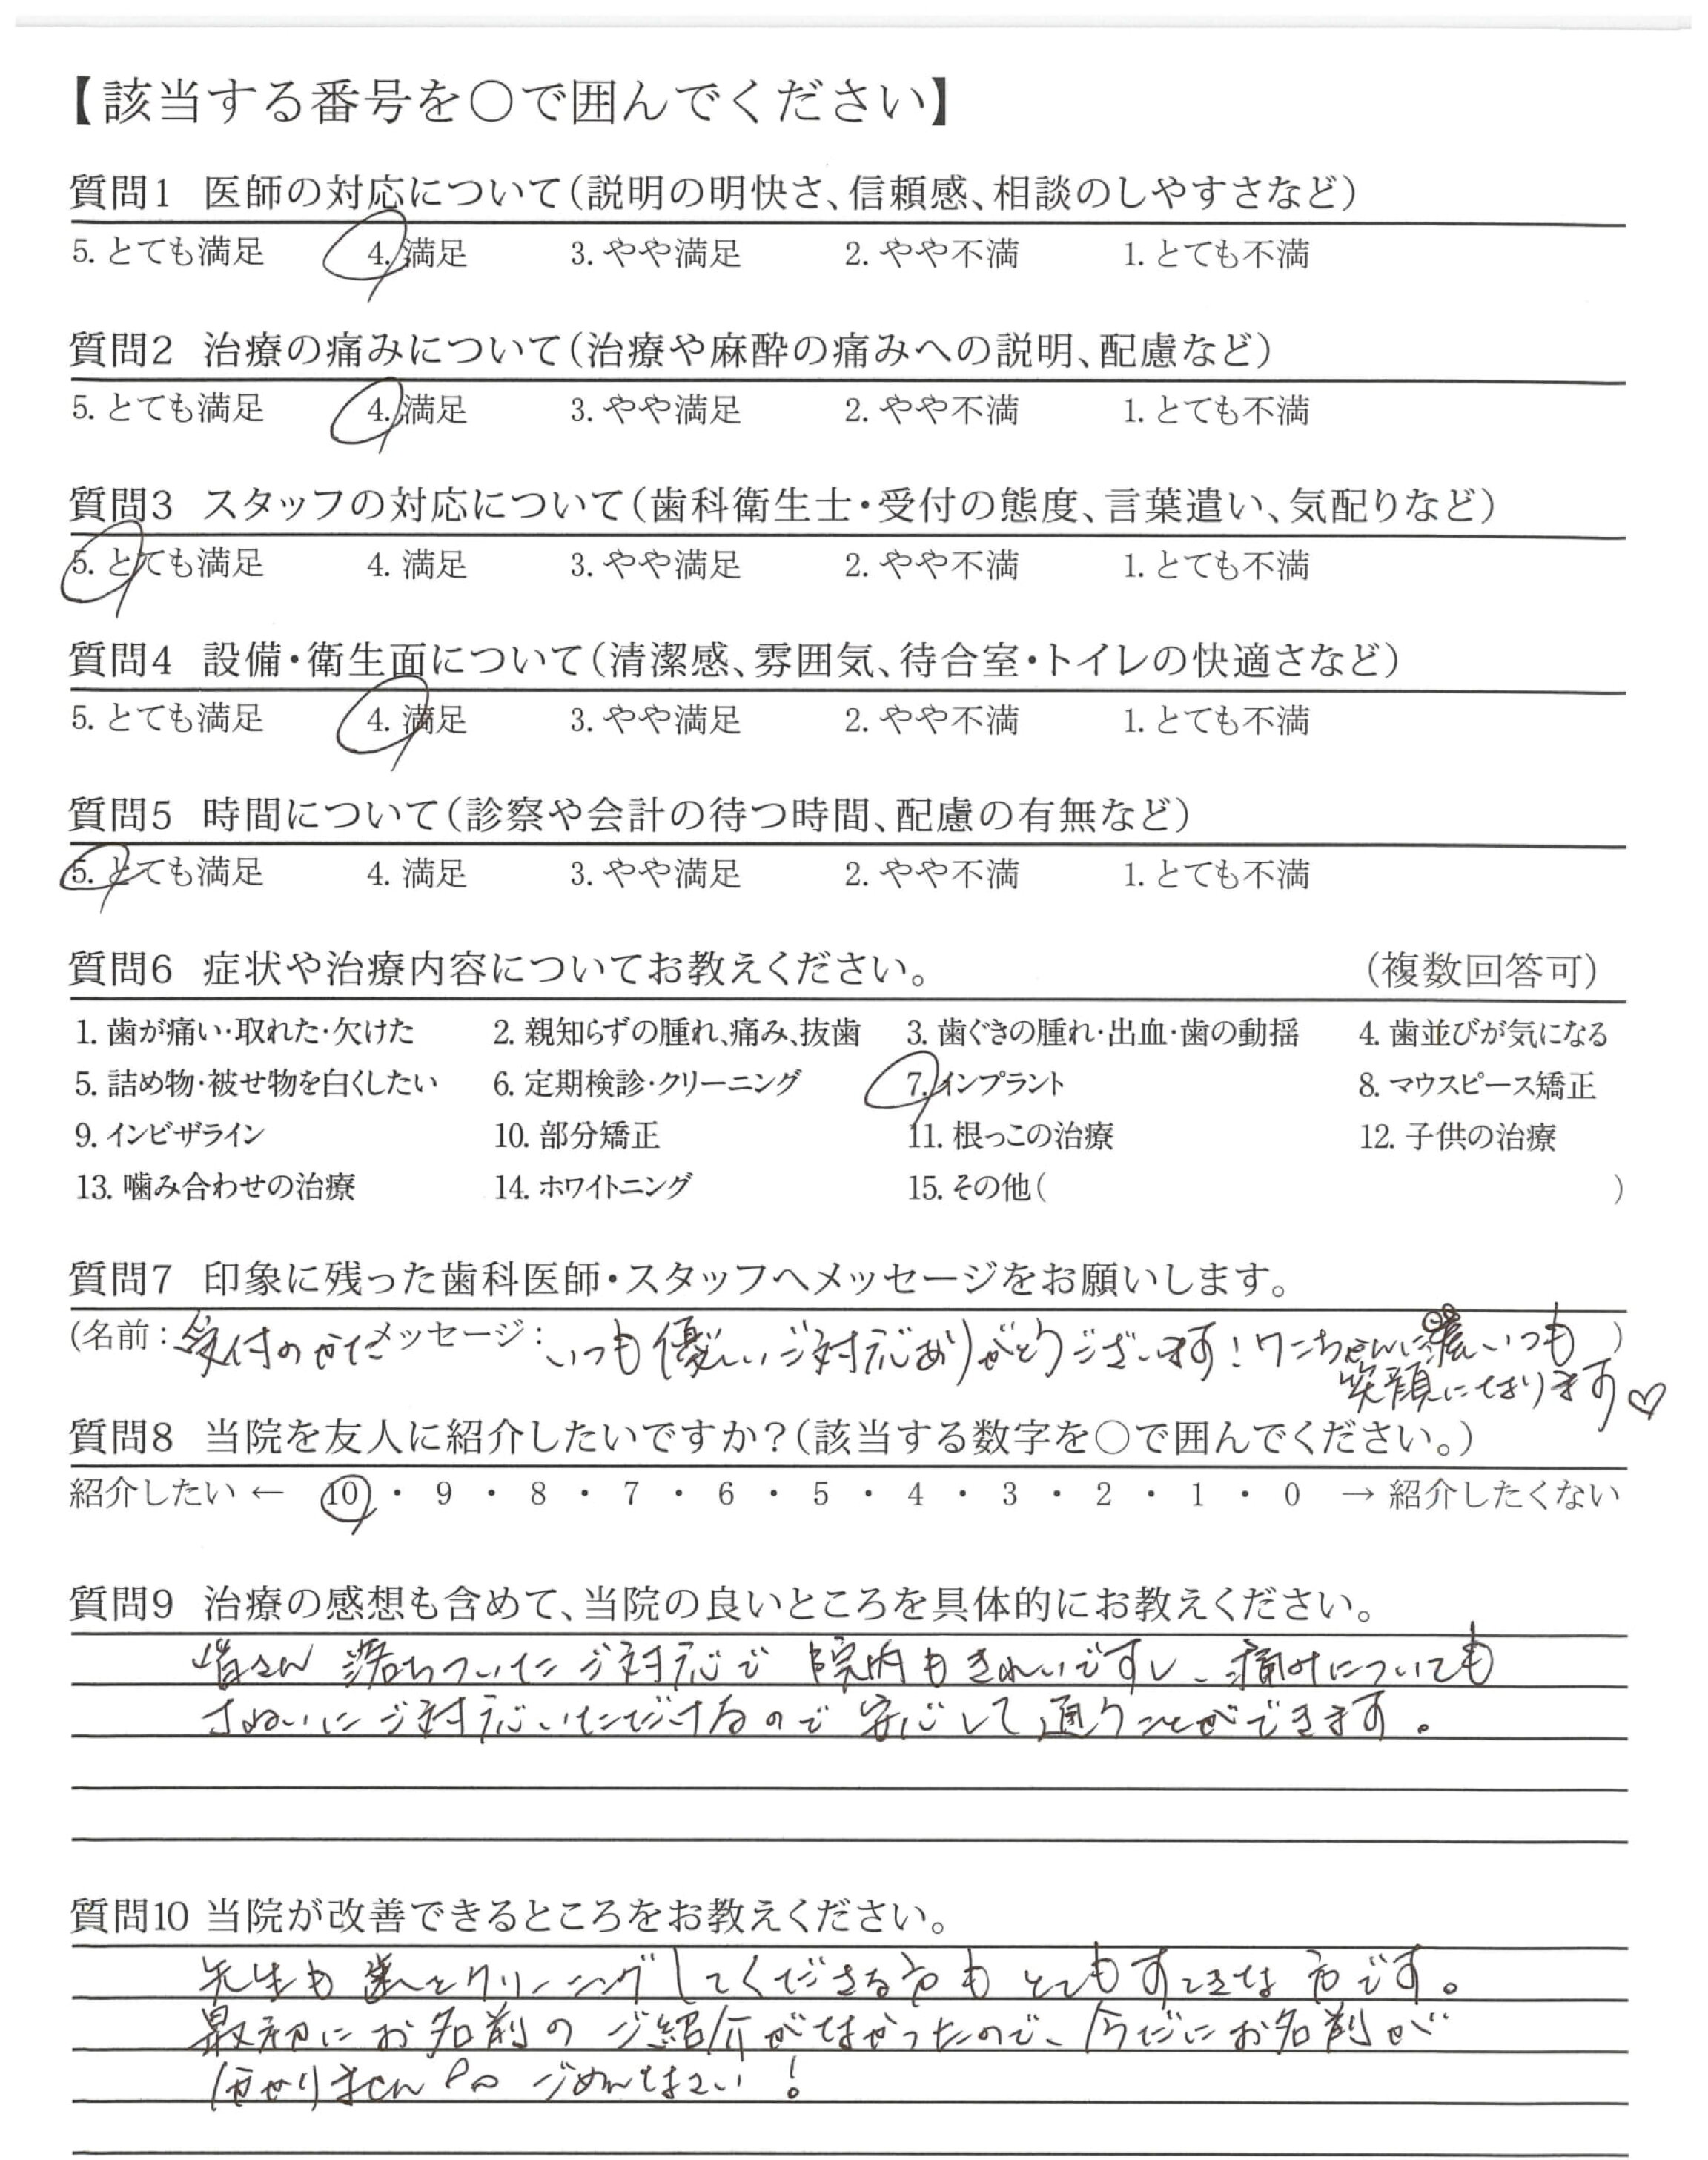 【該当する番号を○で囲んでください】
質問1 医師の対応について(説明の明快さ、信頼感、相談のしやすさなど)
5. とても満足 4. 満足 3. やや満足 2. やや不満 1. とても不満
質問2 治療の痛みについて(治療や麻酔の痛みへの説明、配慮など)
5. とても満足 4. 満足 3. やや満足 2. やや不満 1. とても不満
質問3 スタッフの対応について(歯科衛生士・受付の態度、言葉遣い、気配りなど)
5. とても満足 4. 満足 3. やや満足 2. やや不満 1. とても不満
質問4 設備・衛生面について(清潔感、雰囲気、待合室・トイレの快適さなど)
5. とても満足 4. 満足 3. やや満足 2. やや不満 1. とても不満
質問5 時間について(診察や会計の待つ時間、配慮の有無など)
5. とても満足 4. 満足 3. やや満足 2. やや不満 1. とても不満
質問6 症状や治療内容についてお教えください。 (複数回答可)
1. 歯が痛い・取れた・欠けた 2. 親知らずの腫れ、痛み、抜歯 3. 歯ぐきの腫れ・出血・歯の動揺 4. 歯並びが気になる
5. 詰め物・被せ物を白くしたい 6. 定期検診・クリーニング 7. インプラント 8. マウスピース矯正
9. インビザライン 10. 部分矯正 11. 根っこの治療 12. 子供の治療
13. 噛み合わせの治療 14. ホワイトニング 15. その他( )
質問7 印象に残った歯科医師・スタッフへメッセージをお願いします。
(名前：受付のかた メッセージ：いつも優しいご対応ありがとうございます！ワンちゃんに いつも )
笑顔になります♡
質問8 当院を友人に紹介したいですか？(該当する数字を○で囲んでください。)
紹介したい ← 10 ・ 9 ・ 8 ・ 7 ・ 6 ・ 5 ・ 4 ・ 3 ・ 2 ・ 1 ・ 0 → 紹介したくない
質問9 治療の感想も含めて、当院の良いところを具体的にお教えください。
皆さん 落ちついたご対応で 院内もきれいですし、痛みについても
ていねいにご対応いただけるので 安心して通うことができます。
質問10 当院が改善できるところをお教えください。
先生も 歯をクリーニングしてくださる方も とてもすてきな方です。
最初にお名前の ご紹介がなかったので、今だにお名前が
分かりません ごめんなさい！